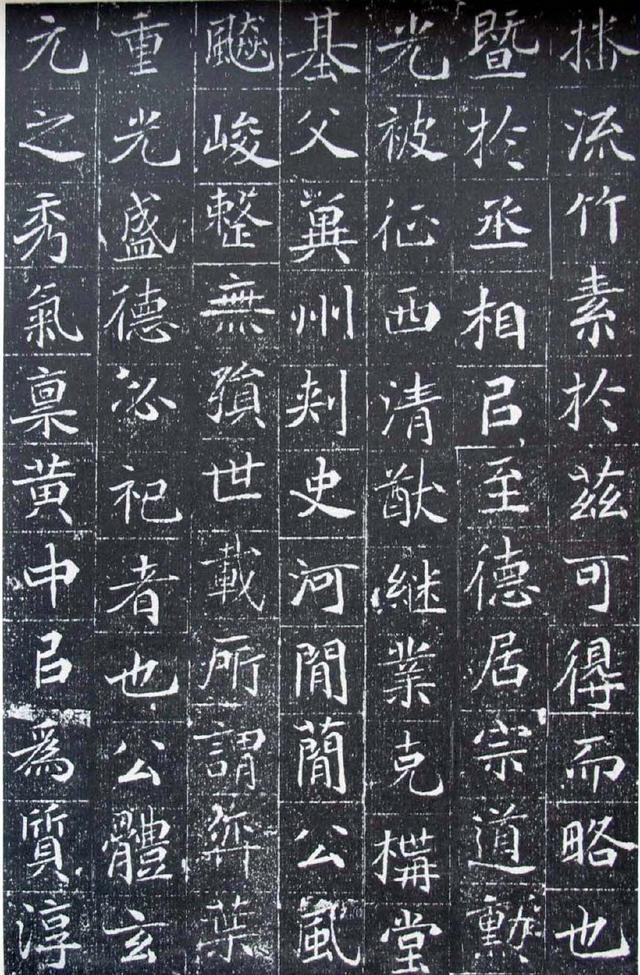 播流竹素於茲可得而略也
暨於丞相㠯至德居宗道勲
光被征西清猷継業克構堂
基父冀州刾史河閒蕳公風
飈峻整無殞世載所謂弈葉
重光盛德必祀者也公體玄
元之秀氣稟黃中㠯爲質淳